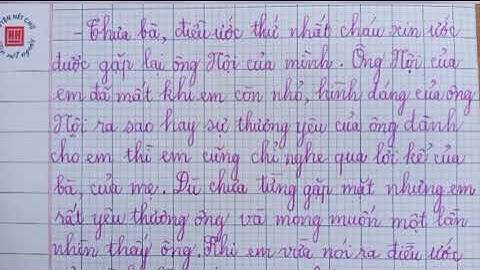 - Thưa bà, điều ước thứ nhất cháu xin ước
được gặp lại ông Nội của mình. Ông Nội của
em đã mất khi em còn nhỏ, hình dáng của ông
Nội ra sao hay sự thương yêu của ông dành
cho em thì em cũng chỉ nghe qua lời kể của
bà, của mẹ. Dù chưa từng gặp mặt nhưng em
rất yêu thương ông và mong muốn một lần
nhìn thấy ông. Khi em vừa nói ra điều ước